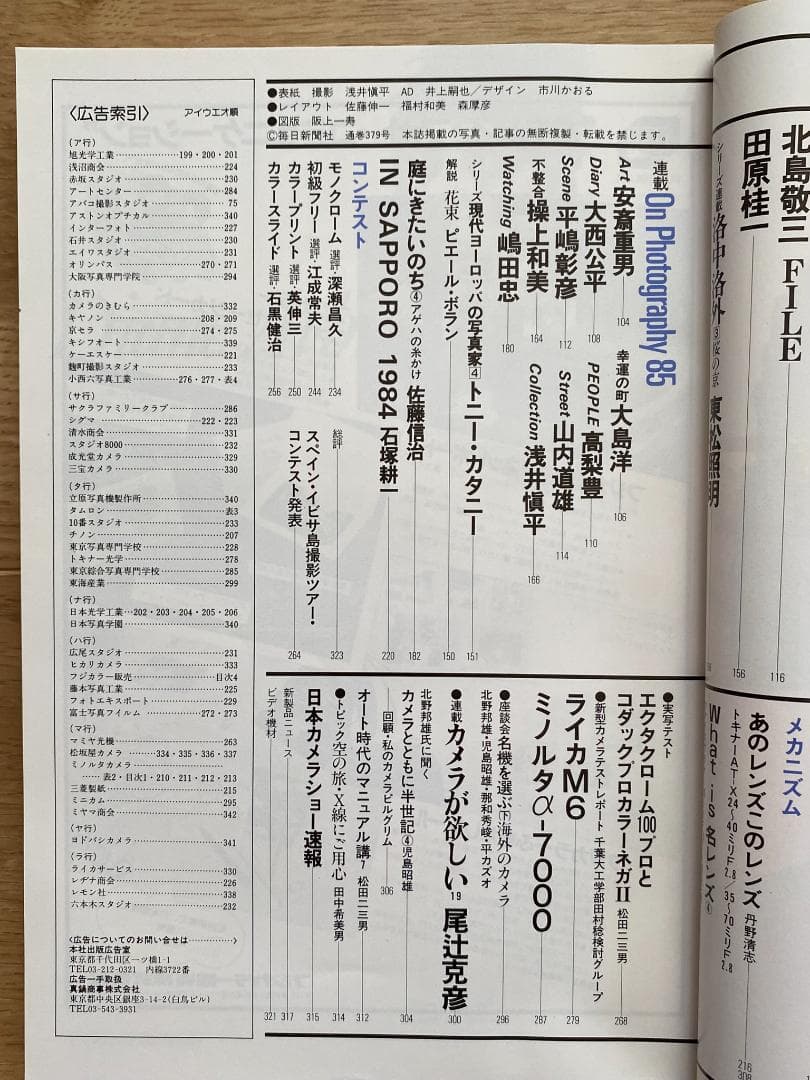 北島敬三 FILE
116
田原桂一
156
シリーズ連載 洛中洛外③桜の京 東松照明
メカニズム
あのレンズこのレンズ 丹野清志
216
トキナーAT-X24〜40ミリF2.8/35〜70ミリF2.8
What is 名レンズ④
308
●表紙 撮影 浅井愼平 AD 井上嗣也/デザイン 市川かおる
●レイアウト 佐藤伸一 福村和美 森摩彦
●図版 阪上一寿
©毎日新聞社 通巻379号 本誌掲載の写真・記事の無断複製・転載を禁じます。
連載 On Photography 85
Art 安斎重男 104
幸運の町 大島洋 106
Diary 大西公平 108
PEOPLE 高梨豊 110
Scene 平嶋彰彦 112
Street 山内道雄 114
不整合 操上和美 164
Collection 浅井愼平 166
Watching 嶋田忠 180
シリーズ 現代ヨーロッパの写真家④ トニー・カタニー 151
解説 花束 ピエール・ボラン 150
庭にきたいのち④アゲハの糸かけ 佐藤信治 182
IN SAPPORO 1984 石塚耕一 220
コンテスト
モノクローム 選評・深瀬昌久 234
総評 323
初級フリー 選評・江成常夫 244
カラープリント 選評・英伸三 250
カラースライド 選評・石黒健治 256
スペイン・イビサ島撮影ツアー・
コンテスト発表 264
●実写テスト
エクタクローム100プロと
コダックプロカラーネガII 松田二三男 268
●新型カメラテストレポート 千葉大工学部田村稔検討グループ
ライカM6 279
ミノルタα-7000 287
●座談会 名機を選ぶ㊦海外のカメラ 296
北野邦雄・児島昭雄・那和秀峻・平カズオ
●連載 カメラが欲しい19 尾辻克彦 300
北野邦雄氏に聞く
カメラとともに半世記④児島昭雄 304
回顧・私のカメラピルグリム 306
オート時代のマニュアル講7 松田二三男 312
●トピック 空の旅・X線にご用心 田中希美男 314
日本カメラショー速報 315
新製品ニュース 317
ビデオ機材 321
〈広告索引〉 アイウエオ順
(ア行)
旭光学工業 199・200・201
浅沼商会 224
赤坂スタジオ 230
アートセンター 284
アバコ撮影スタジオ 75
アストンオプチカル 340
インターフォト 227
石井スタジオ 230
エイワスタジオ 231
オリンパス 270・271
大阪写真専門学院 294
(カ行)
カメラのきむら 332
キヤノン 208・209
京セラ 274・275
キシフォート 339
ケーエスケー 221
麹町撮影スタジオ 233
小西六写真工業 276・277・表4
(サ行)
サクラファミリークラブ 286
シグマ 222・223
清水商会 331
スタジオ8000 232
成光堂カメラ 329
三宝カメラ 330
(タ行)
立原写真機製作所 340
タムロン 表3
10番スタジオ 233
チノン 207
東京写真専門学校 228
トキナー光学 278
東京綜合写真専門学校 285
東海産業 299
(ナ行)
日本光学工業 202・203・204・205・206
日本写真学園 340
(ハ行)
広尾スタジオ 231
ヒカリカメラ 333
フジカラー販売 目次4
藤本写真工業 225
フォトエキスポート 229
富士写真フイルム 272・273
(マ行)
マミヤ光機 263
松坂屋カメラ 334・335・336・337
ミノルタカメラ
表2・目次1・210・211・212・213
三菱製紙 215
ミニカム 295
ミヤマ商会 342
(ヤ行)
ヨドバシカメラ 341
(ラ行)
ライカサービス 330
レヂナ商会 226
レモン社 338
六本木スタジオ 232
〈広告についてのお問い合せは…………〉
本社出版広告室
東京都千代田区一ツ橋1-1
TEL03-212-0321 内線3722番
広告一手取扱
真鍋商事株式会社
東京都中央区銀座3-14-2(白鳥ビル)
TEL03-543-3931